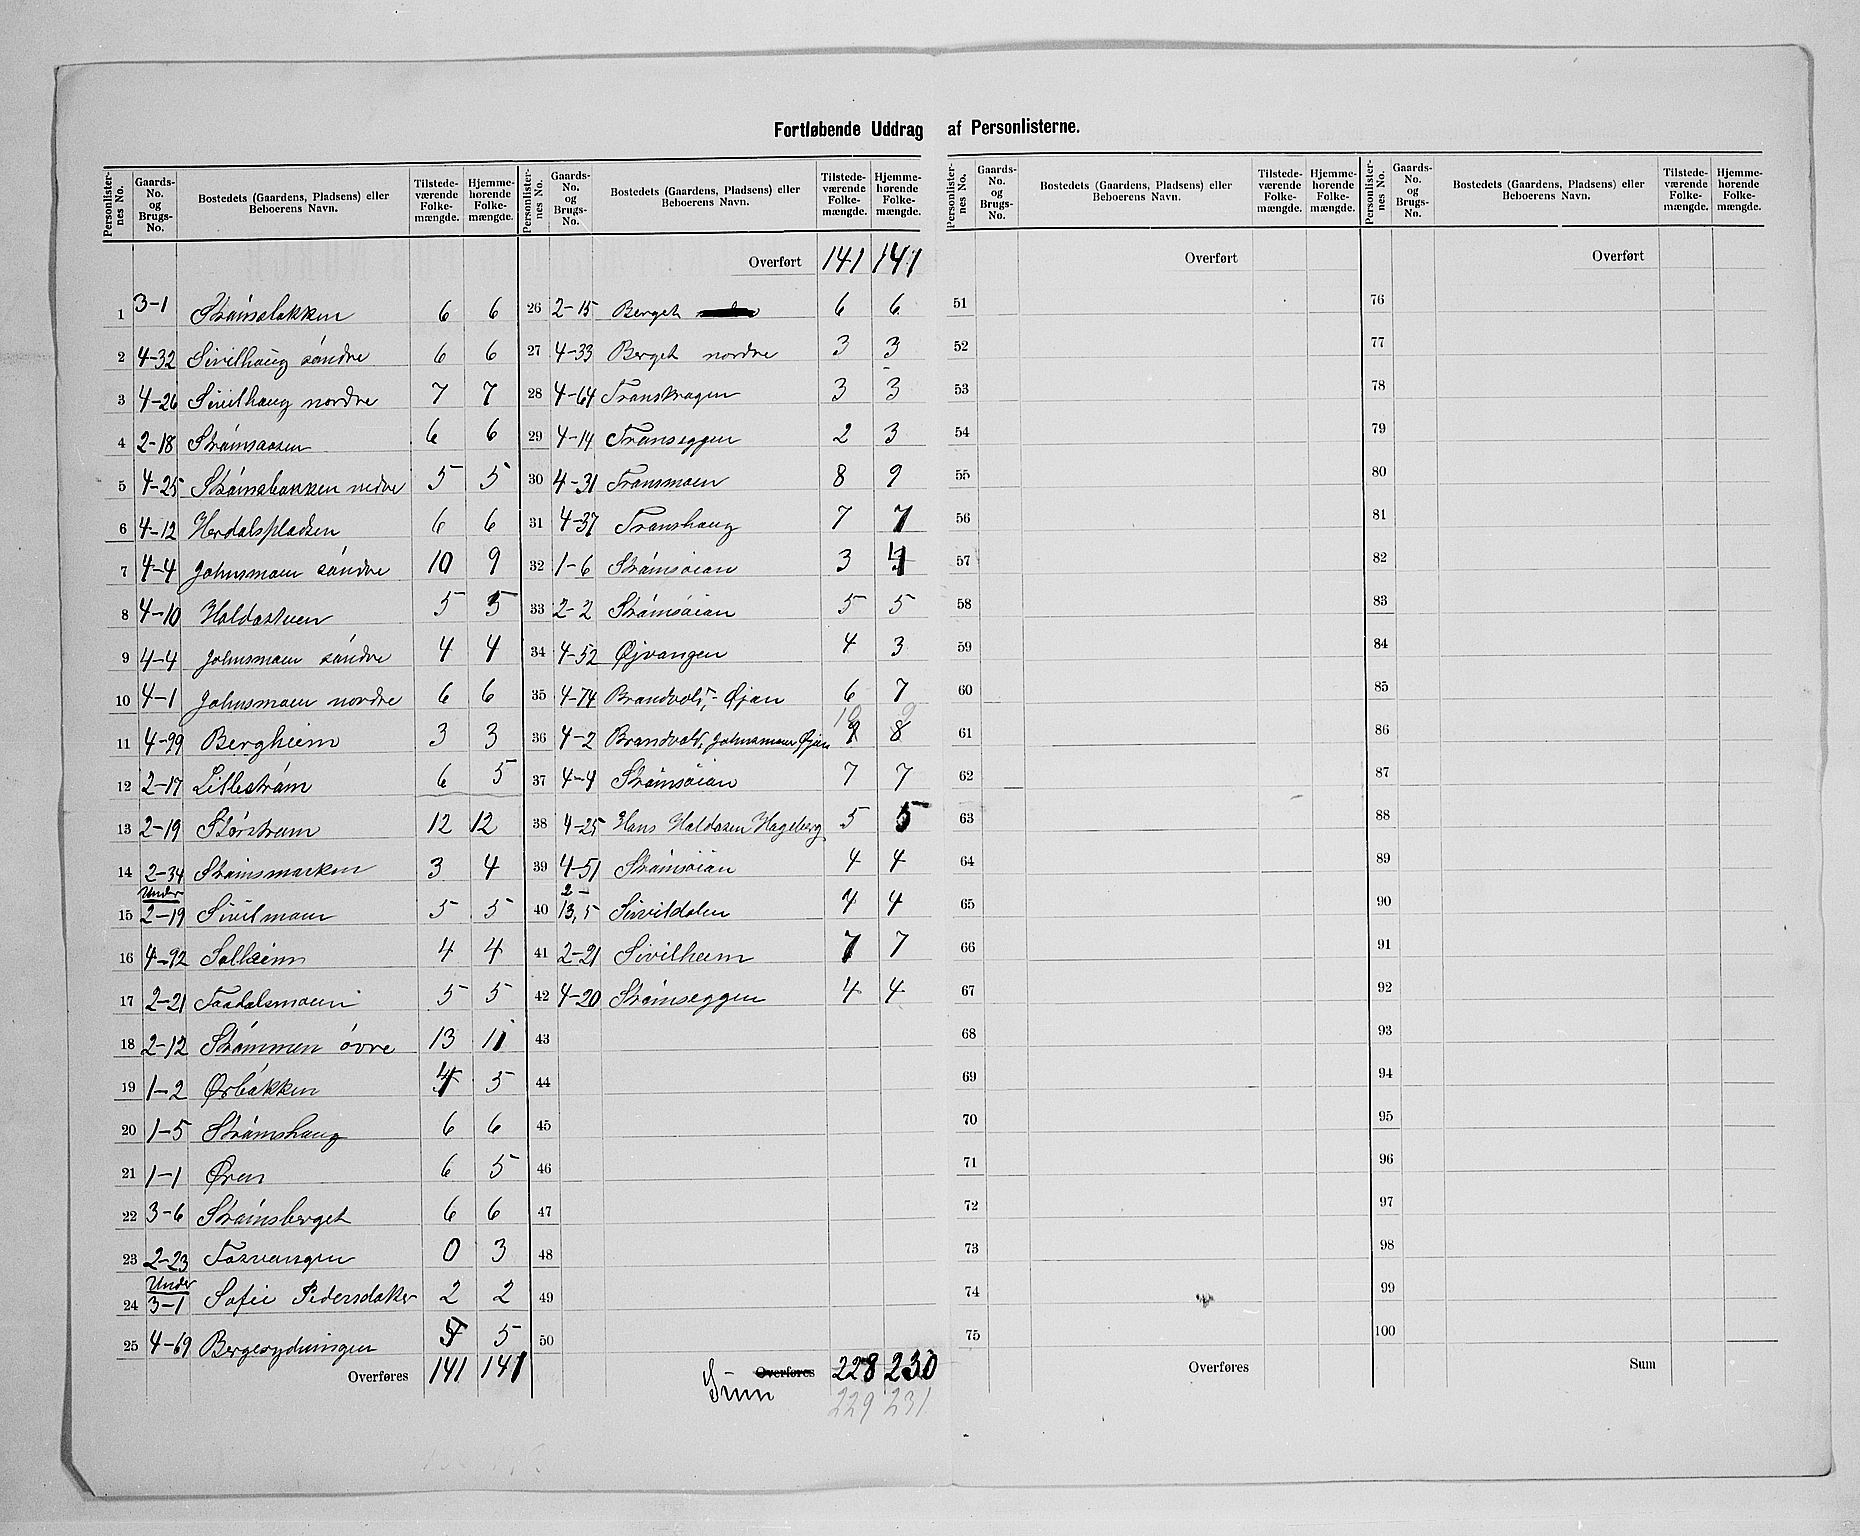 Fortløbende Uddrag af Personlisterne.
Personlister-nes No. | Gaards-No. og Brugs-No. | Bostedets (Gaardens, Pladsens) eller Beboerens Navn. | Tilstede-værende Folke-mængde. | Hjemme-hørende Folke-mængde.
1 3-1 Strömsbakken 6 6
2 4-32 Sivilhaug söndre 6 6
3 4-26 Sivilhaug nordre 7 7
4 2-18 Strömsaasen 6 6
5 4-25 Strömsbakken nedre 5 5
6 4-12 Herdalspladsen 6 6
7 4-4 Johnsmoen söndre 10 9
8 4-10 Haldostuen 5 5
9 4-4 Johnsmoen söndre 4 4
10 4-1 Johnsmoen nordre 6 6
11 4-99 Bergheim 3 3
12 2-17 Lillestrøm 6 5
13 2-19 Storstrøm 12 12
14 2-34 Strömsmarken 3 4
Under
15 2-19 Sivilmoen 5 5
16 4-92 Solheim 4 4
17 2-21 Faadalsmoen 5 5
18 2-12 Strömmen övre 13 11
19 1-2 Ørbäkken 4 5
20 1-5 Strömshaug 6 6
21 1-1 Øren 6 5
22 3-6 Strömsberget 6 6
23 2-23 Fosvangen 0 3
Under
24 3-1 Sofie Pedersdatter 2 2
25 4-69 Bergesrydningen 5
Overføres 141 141
Personlister-nes No. | Gaards-No. og Brugs-No. | Bostedets (Gaardens, Pladsens) eller Beboerens Navn. | Tilstede-værende Folke-mængde. | Hjemme-hørende Folke-mængde.
Overført 141 141
26 2-15 Berget 6 6
27 4-33 Berget nordre 3 3
28 4-64 Tronskragen 3 3
29 4-14 Tronseggen 2 3
30 4-31 Tronsmoen 8 9
31 4-37 Tronshaug 7 7
32 1-6 Strömsøian 3
33 2-2 Strömsøian 5 5
34 4-52 Øjvangen 4 3
35 4-74 Brandvold,- Øjan 6 7
36 4-2 Brandvold, Johnsmoen Øjan 8
37 4-4 Strömsøian 7 7
38 4-25 Hans Haldosen Hageberg 5 5
39 4-51 Strömsøian 4 4
2-
40 13,5 Sivildalen 4 4
41 2-21 Sivilheim 7 7
42 4-20 Strömseggen 4 4
43
44
45
46
47
48
49
50
Overføres 228 230
Sum 229 231
Personlister-nes No. | Gaards-No. og Brugs-No. | Bostedets (Gaardens, Pladsens) eller Beboerens Navn. | Tilstede-værende Folke-mængde. | Hjemme-hørende Folke-mængde.
Overført
51
52
53
54
55
56
57
58
59
60
61
62
63
64
65
66
67
68
69
70
71
72
73
74
75
Overføres
Personlister-nes No. | Gaards-No. og Brugs-No. | Bostedets (Gaardens, Pladsens) eller Beboerens Navn. | Tilstede-værende Folke-mængde. | Hjemme-hørende Folke-mængde.
Overført
76
77
78
79
80
81
82
83
84
85
86
87
88
89
90
91
92
93
94
95
96
97
98
99
100
Sum